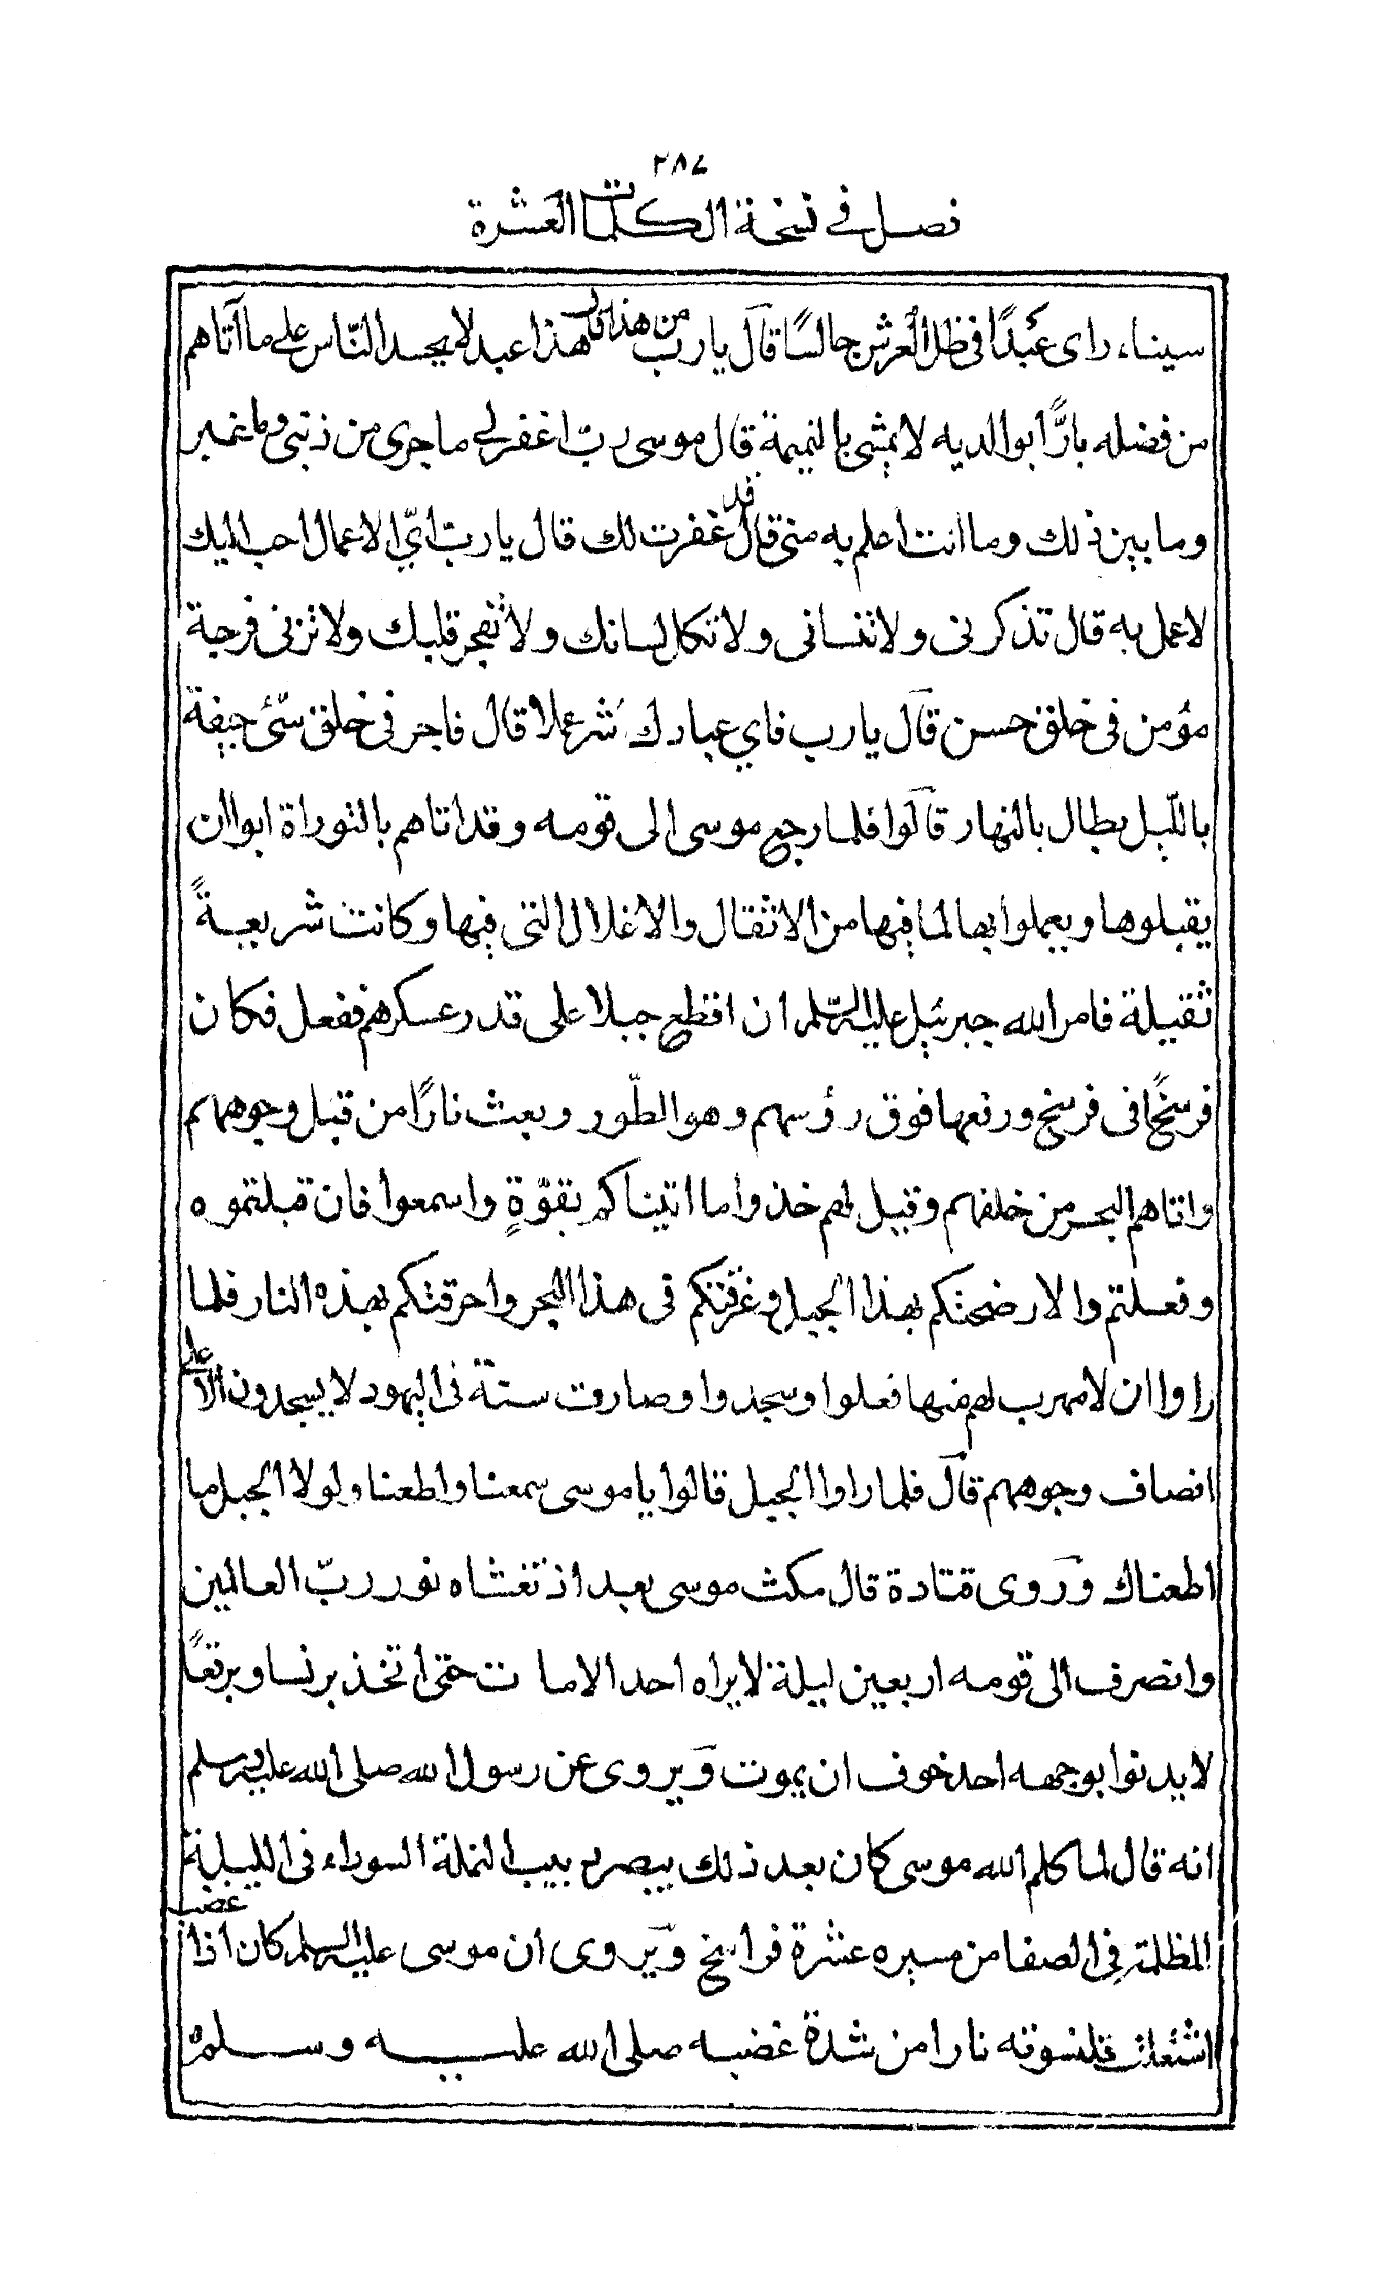 ٢٨٧
فصل في نسخة الكلمات العشرة
سيناء راى عبدًا في ظل العرش جالسًا قال يا رب من هذا قال هذا عبد لا يحسد الناس على ما اتاهم
من فضله بارًّا بوالديه لا يمشى بالنميمة قال موسى ربّ اغفر لى ما جرى من ذنبى وما غبر
وما بين ذلك وما انت اعلم به منى قال قد غفرت لك قال يا ربّ اىّ الاعمال احب اليك
لاعمل به قال تذكرنى ولا تنسانى ولا تكل لسانك ولا تفجر قلبك ولا تزنى فرجة
مؤمن فى خلق حسن قال يا رب فاى عبادك شر عملا قال فاجر فى خلق سّئ جيفة
بالليل بطال بالنهار قالوا فلما رجع موسى الى قومه وقد اتاهم بالتوراة ابوا ان
يقبلوها ويعملوا بها لما فيها من الاثقال والاغلال التى فيها وكانت شريعةً
ثقيلة فامر الله جبرئيل عليه السّلم ان اقطع جبلا على قدر عسكرهم ففعل فكان
فرسخًا فى فرسخ ورفعها فوق رؤسهم وهو الطّور وبعث نارًا من قبل وجوههم
واتاهم البحر من خلفهم وقيل لهم خذوا ما اتيناكم بقوّةٍ واسمعوا فان قبلتموه
وفعلتم والا رضحتكم بهذا الجبل وغرّقتكم فى هذا البحر واحرقتكم بهذه النار فلما
راوا ان لا مهرب لهم منها فعلوا وسجدوا وصارت سنة فى اليهود لا يسجدون الا على
انصاف وجوههم قال فلما راوا الجبل قالوا يا موسى سمعنا واطعنا ولولا الجبل ما
اطعناك وروى قتادة قال مكث موسى بعد اذ تغشاه نور ربّ العالمين
وانصرف الى قومه اربعين ليلة لا يراه احد الا مات حتى اتخذ برنسا وبرقعًا
لا يدنوا بوجهه احد خوف ان يموت ويروى عن رسول الله صلى الله عليه وسلم
انه قال لما كلم الله موسى كان بعد ذلك يبصر دبيب النملة السوداء فى الليلة
المظلمة فى الصفا من مسيره عشرة فراسخ ويروى ان موسى عليه السلم كان اذا غضب
اشتعلت قلنسوته نارا من شدة غضبه صلى الله عليه وسلم